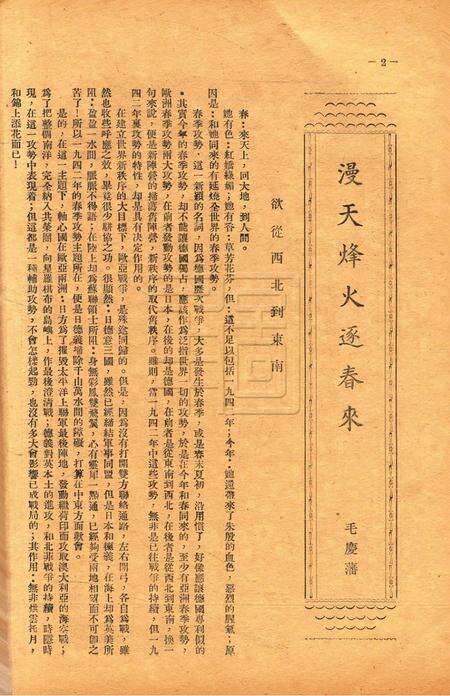 —2—
漫天烽火逐春來
毛慶藩
欲從西北到東南
春:來天上,回大地,到人間。
她有色:紅嬌綠媚;她有香:草芳花芬,但:這不足以包括一九四二;今年:她還帶來了朱殷的血色,惡烈的腥氣;原
因是:和她同來的有延燒免世界的春季攻勢。
春季攻勢,這一新穎的名詞,因爲德國歷次戰爭,大多是發生於春季,或是春末夏初,沿用慣了,好像應讓德國專利似的
。其實今年的春季攻勢,却不能讓德國獨占,應該作爲泛指世界一切的攻勢,於是在今年和春同來的,至少有亞洲春季攻勢,
歐洲春季攻勢兩大攻勢,在前者發動攻勢的是日本,在後的却是德國,在前者是從東南到西北,在後者是從西北到東南,換一
句來說,便是新陣營的掃蕩舊陣營,新秩序的取代舊秩序。雖則,當一九四二年中這些攻勢,無非是已往戰爭的持續,但一九
四二年裏攻勢的特性,却是具有決定作用的。
在建立世界新秩序的大目標下,歐亞戰爭,是殊途同歸的。但是,因爲沒有打開雙方聯絡通路,左右開弓,各自爲戰,雖
然也收些呼應之效,畢竟很少駢協之功。很顯然:日德意三國,雖然已經締結軍事同盟,但是日本和德義,在海上却爲英美所
阻:盈盈一水間,脈脈不得語;在陸上却爲蘇聯領土所阻:身無彩鳳雙飛翼,心有靈犀一點通,已經夠受兩地相望而不可卽之
苦了!所以一九四二年的春季攻勢主題所在,便是日德義掃除千山萬水間的障礙,打算在中東方面歡會。
是的,在這一主題下,軸心國在歐亞南洲:日方爲了摧毀太平洋上聯軍最後陣地,發動緬荷印而攻取澳大利亞的海空戰;
爲了把整個南洋,完全納入共榮圈,向星羅棋布的島嶼上,作最後澄清戰;德義對英本土的進攻,和北非戰爭的持續,時隱時
現,在這一攻勢中表現着;但這都是一種輔助攻勢,不會怎樣起勁,也沒有多大會影響已成戰局的;其作用:無非烘雲托月,
和錦上添花而已!